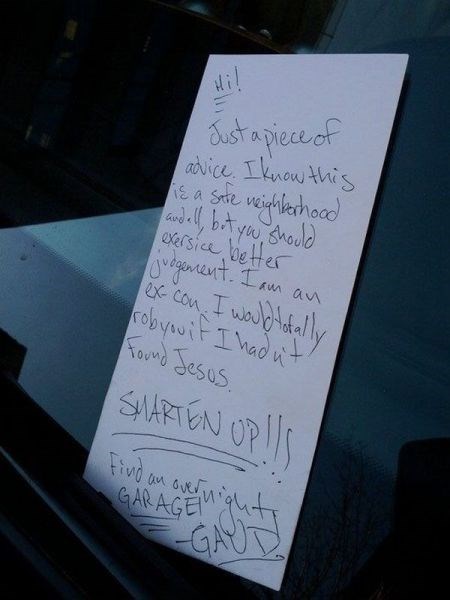 Hi!
Just a piece of
advice. I know this
is a safe neighborhood
and all, but you should
exersice better
judgement. I am an
ex-con. I would totally
rob you if I hadn't
Found Jesos.
SMARTEN UP!!!
Find an overnight
GARAGE!